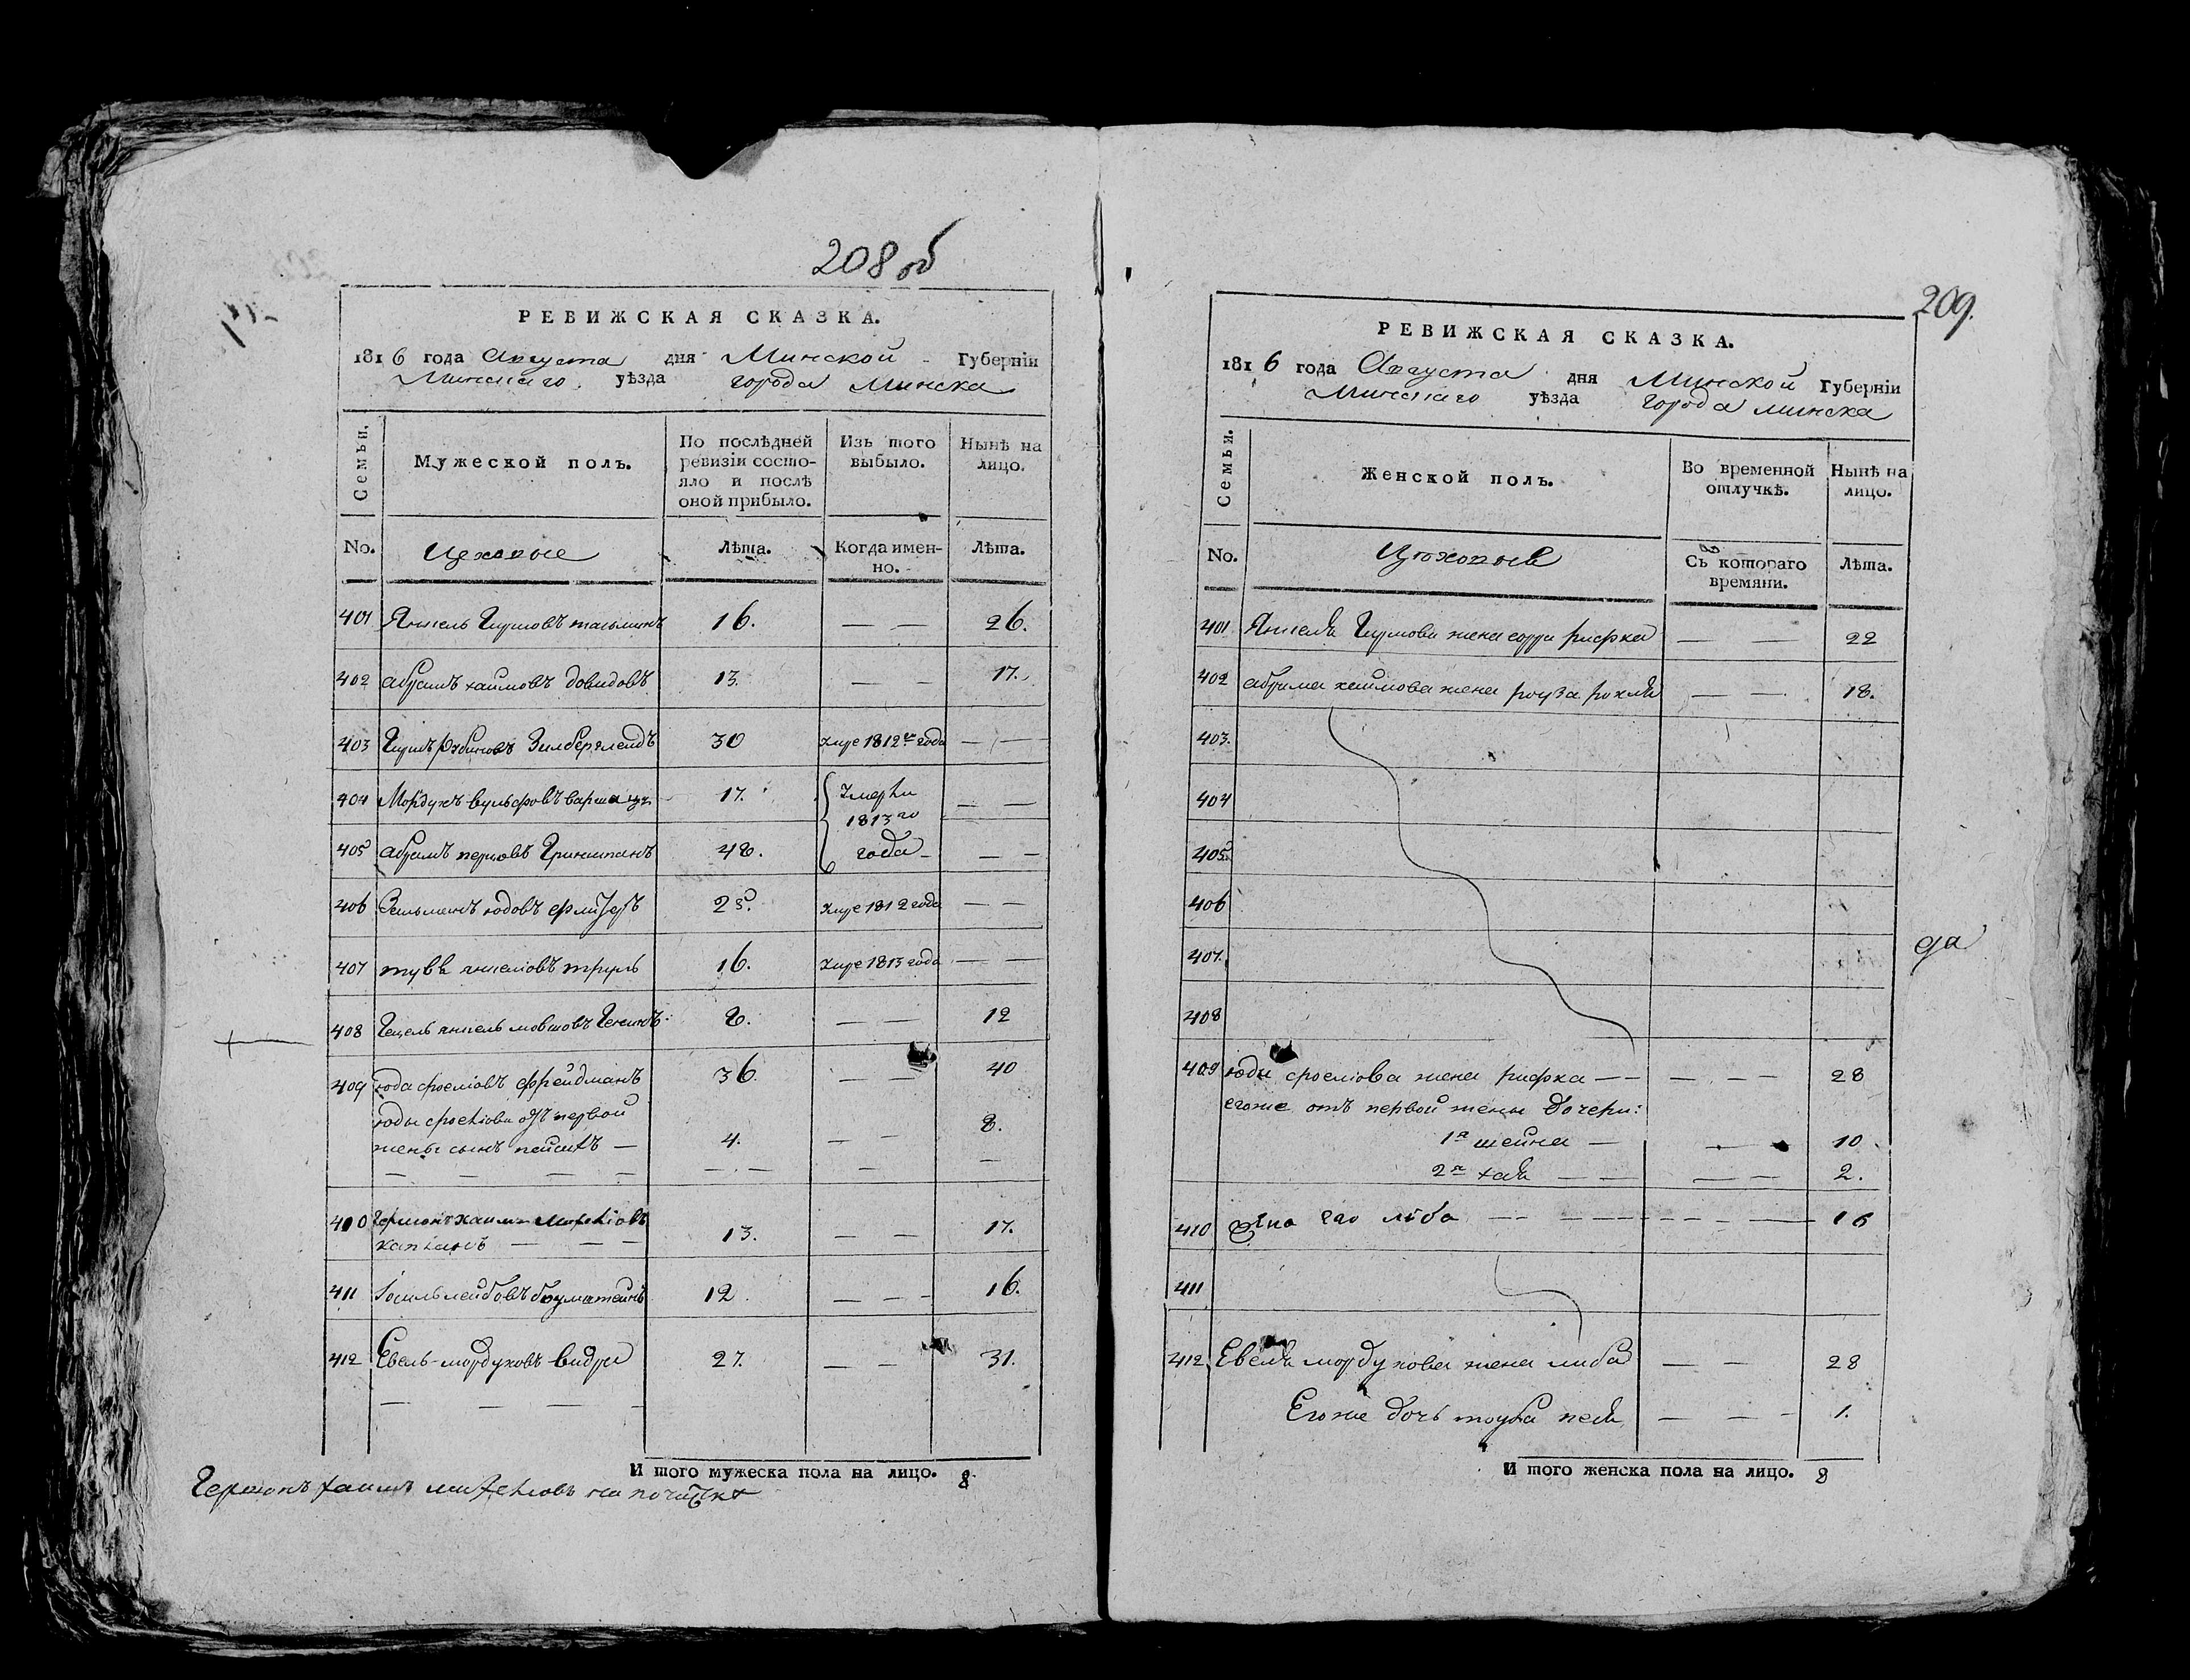 208 об
РЕВИЖСКАЯ СКАЗКА.
1816 года Августа дня Минской Губерніи
Минскаго уѣзда города Минска
Семьи.
Мужеской полъ.
По послѣдней ревизіи состо-
яло и послѣ
оной прибыло.
Изъ того
выбыло.
Нынѣ на
лицо.
No. Цеховые Лѣта. Когда имен-
но. Лѣта.
401 Янкель Гиршовъ 16. — — 26.
402 абрамъ хаимовъ довидовъ 13. — — 17.
403 Гиршъ Рубиновъ 30 умре 1812го года — —
404 Мордухъ вульфовъ 17. умерли — —
1813го
405 абрамъ Гриншпанъ 48. года — —
406 Зельманъ юдовъ 25. умре 1812 года — —
407 янкеловъ 16. умре 1813 года — —
408 Гецель янкель мовшовъ 8. — — 12
409 юда сроеліовъ фрейдманъ 36. — — 40
юды сроеліова отъ первой
жены сынъ пейсахъ — 4. — — 8.
410 Гершонъ хаимъ
капланъ — — — 13. — — 17.
411 лейбовъ 12. — — — 16.
412 Евель мордуховъ видри 27. — — 31.
И того мужеска пола на лицо. 8
Гершонъ хаимъ
209.
РЕВИЖСКАЯ СКАЗКА.
1816 года Августа дня Минской Губерніи
Минскаго уѣзда города минска
Семьи.
Женской полъ.
Во временной
отлучкѣ.
Нынѣ на
лицо.
No. Цеховые Съ котораго
времяни. Лѣта.
401. Янкеля Гиршова жена сорра рифка — — 22
402 абрама хаимова жена роуза рохля — — 18.
403.
404
405.
406
407.
да
408
409 юды сроеліова жена рифка — — — — — 28
егоже отъ первой жены дочери:
1я шейна — — — 10
2я хая — — — — 2.
410 жена его либа — — — 16
411
412 Евеля мордухова жена либа — — 28
Егоже дочь тоуба песя — — — 1.
И того женска пола на лицо. 8